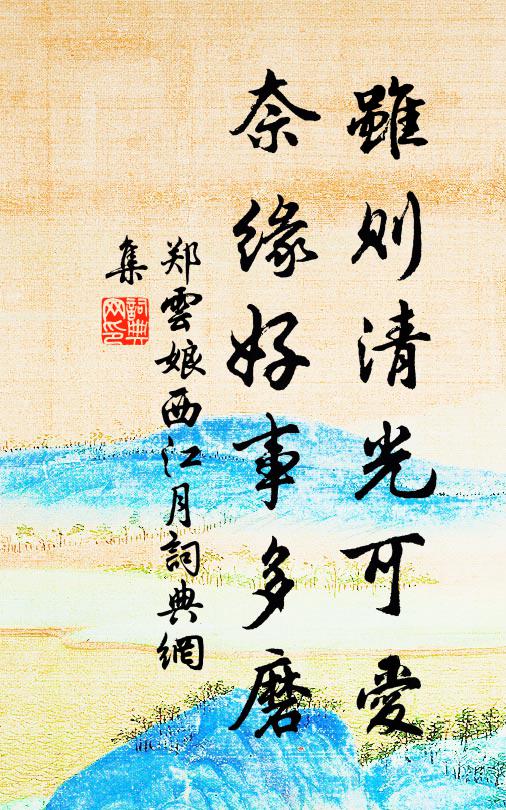 雖則清光可愛
奈緣好事多磨
郑雲娘西江月詞典網
集
詞典
网印